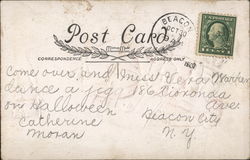 Post Card
CORRESPONDENCE
ADDRESS ONLY
BEACON
OCT 30
come over and
dance a jigg
on Halloween
Catherine
Moran
Miss Vera
186 Fishkill
Ave
Beacon City
N Y